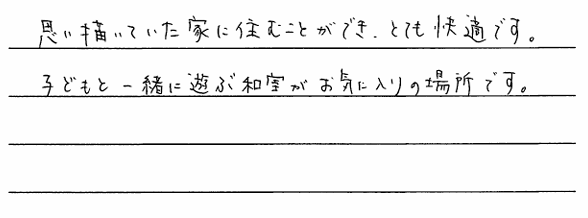 思い描いていた家に住むことができ、とても快適です。
子どもと一緒に遊ぶ和室がお気に入りの場所です。